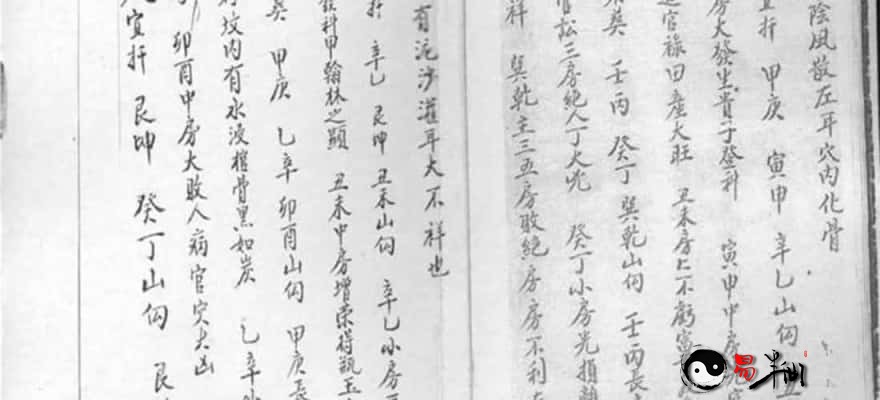 陰風散左耳穴内化骨
宜扦 甲庚 寅申 辛乙山向
房大發生貴子登科 寅申中房
官祿田產大旺 丑未房亡不虧富
葬 壬丙 癸丁 巽乾山向 壬丙長
官訟三房絕人丁大凶 癸丁小房先損
祥 巽乾主三五房敗絕房房不利
有泥沙灌耳大不祥也
扦 辛乙 艮坤 丑未山向 辛乙小房
發科甲翰林之顯 丑未中房增榮待執玉
葬 甲庚 乙辛 卯酉山向 甲庚長
墳内有水浸棺骨黑如炭 乙辛
卯酉中房大敗人病官災大凶
宜扦 艮坤 癸丁山向 艮
易半仙